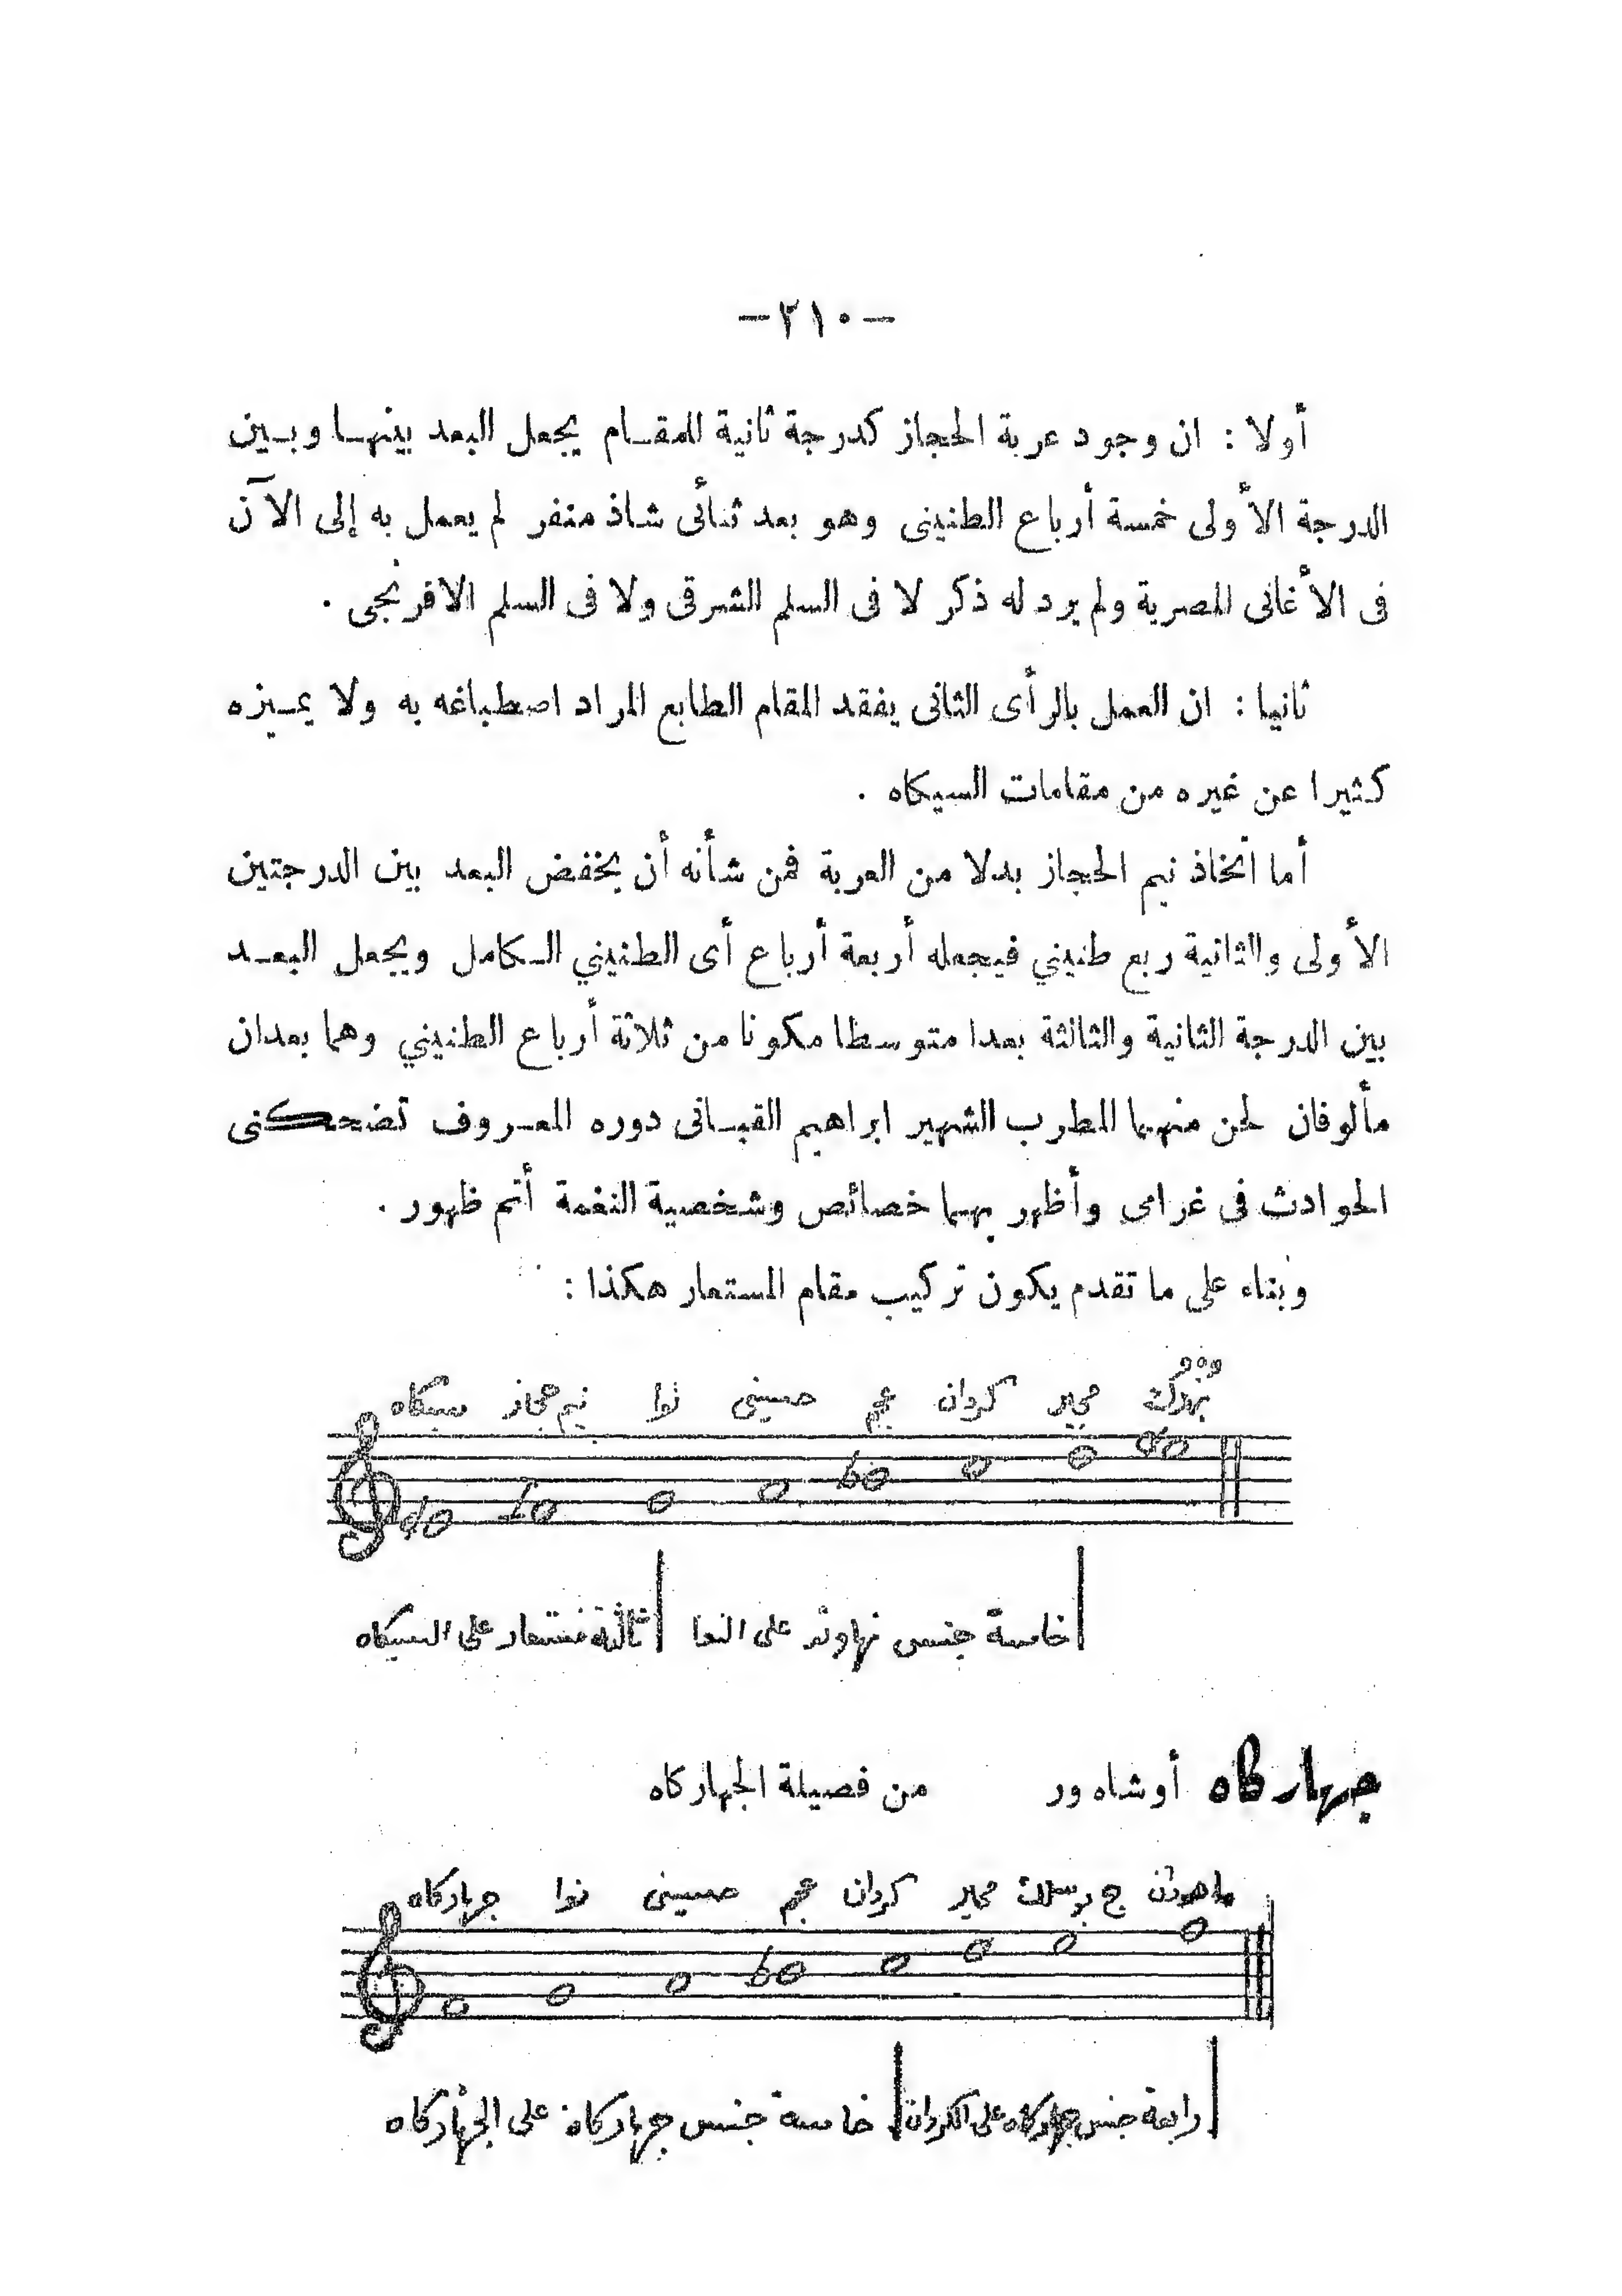 — ٢١٠ —
أولا : ان وجود عربة الحجاز كدرجة ثانية للمقـام يجعل البعد بينهـا وبـين
الدرجة الأولى خمسة أرباع الطنينى وهو بعد ثنائى شاذ منفر لم يعمل به إلى الآن
فى الأغانى المصرية ولم يرد له ذكر لا فى السلم الشرقى ولا فى السلم الافرنجى .
ثانيا : ان العمل بالرأى الثانى يفقد المقام الطابع المراد اصطباغه به ولا يمـيزه
كثيرا عن غيره من مقامات السيكاه .
أما اتخاذ نيم الحجاز بدلا من العربة فمن شأنه أن يخفض البعد بين الدرجتين
الأولى والثانية ربع طنيني فيجعله أربعة أرباع أى الطنيني الـكامل ويجعل البعـد
بين الدرجة الثانية والثالثة بعدا متوسطا مكونا من ثلاثة أرباع الطنيني وهما بعدان
مألوفان لحن منهما المطرب الشهير ابراهيم القبـانى دوره المعـروف تضحكنى
الحوادث فى غرامى وأظهر بهما خصائص وشخصية النغمة أتم ظهور .
وبناء على ما تقدم يكون تركيب مقام المستعار هكذا :
سيكاه نيم حجاز نوا حسينى عجم كردان محير بزرك
ثالثة مستعار على السيكاه خامسة جنس نهاوند على النوا
جهاركاه أو شاه ور من فصيلة الجهاركاه
جهاركاه نوا حسينى عجم كردان محير ج بوسلك ماهوران
خامسة جنس جهاركاه على الجهاركاه رابعة جنس جهاركاه على الكردان